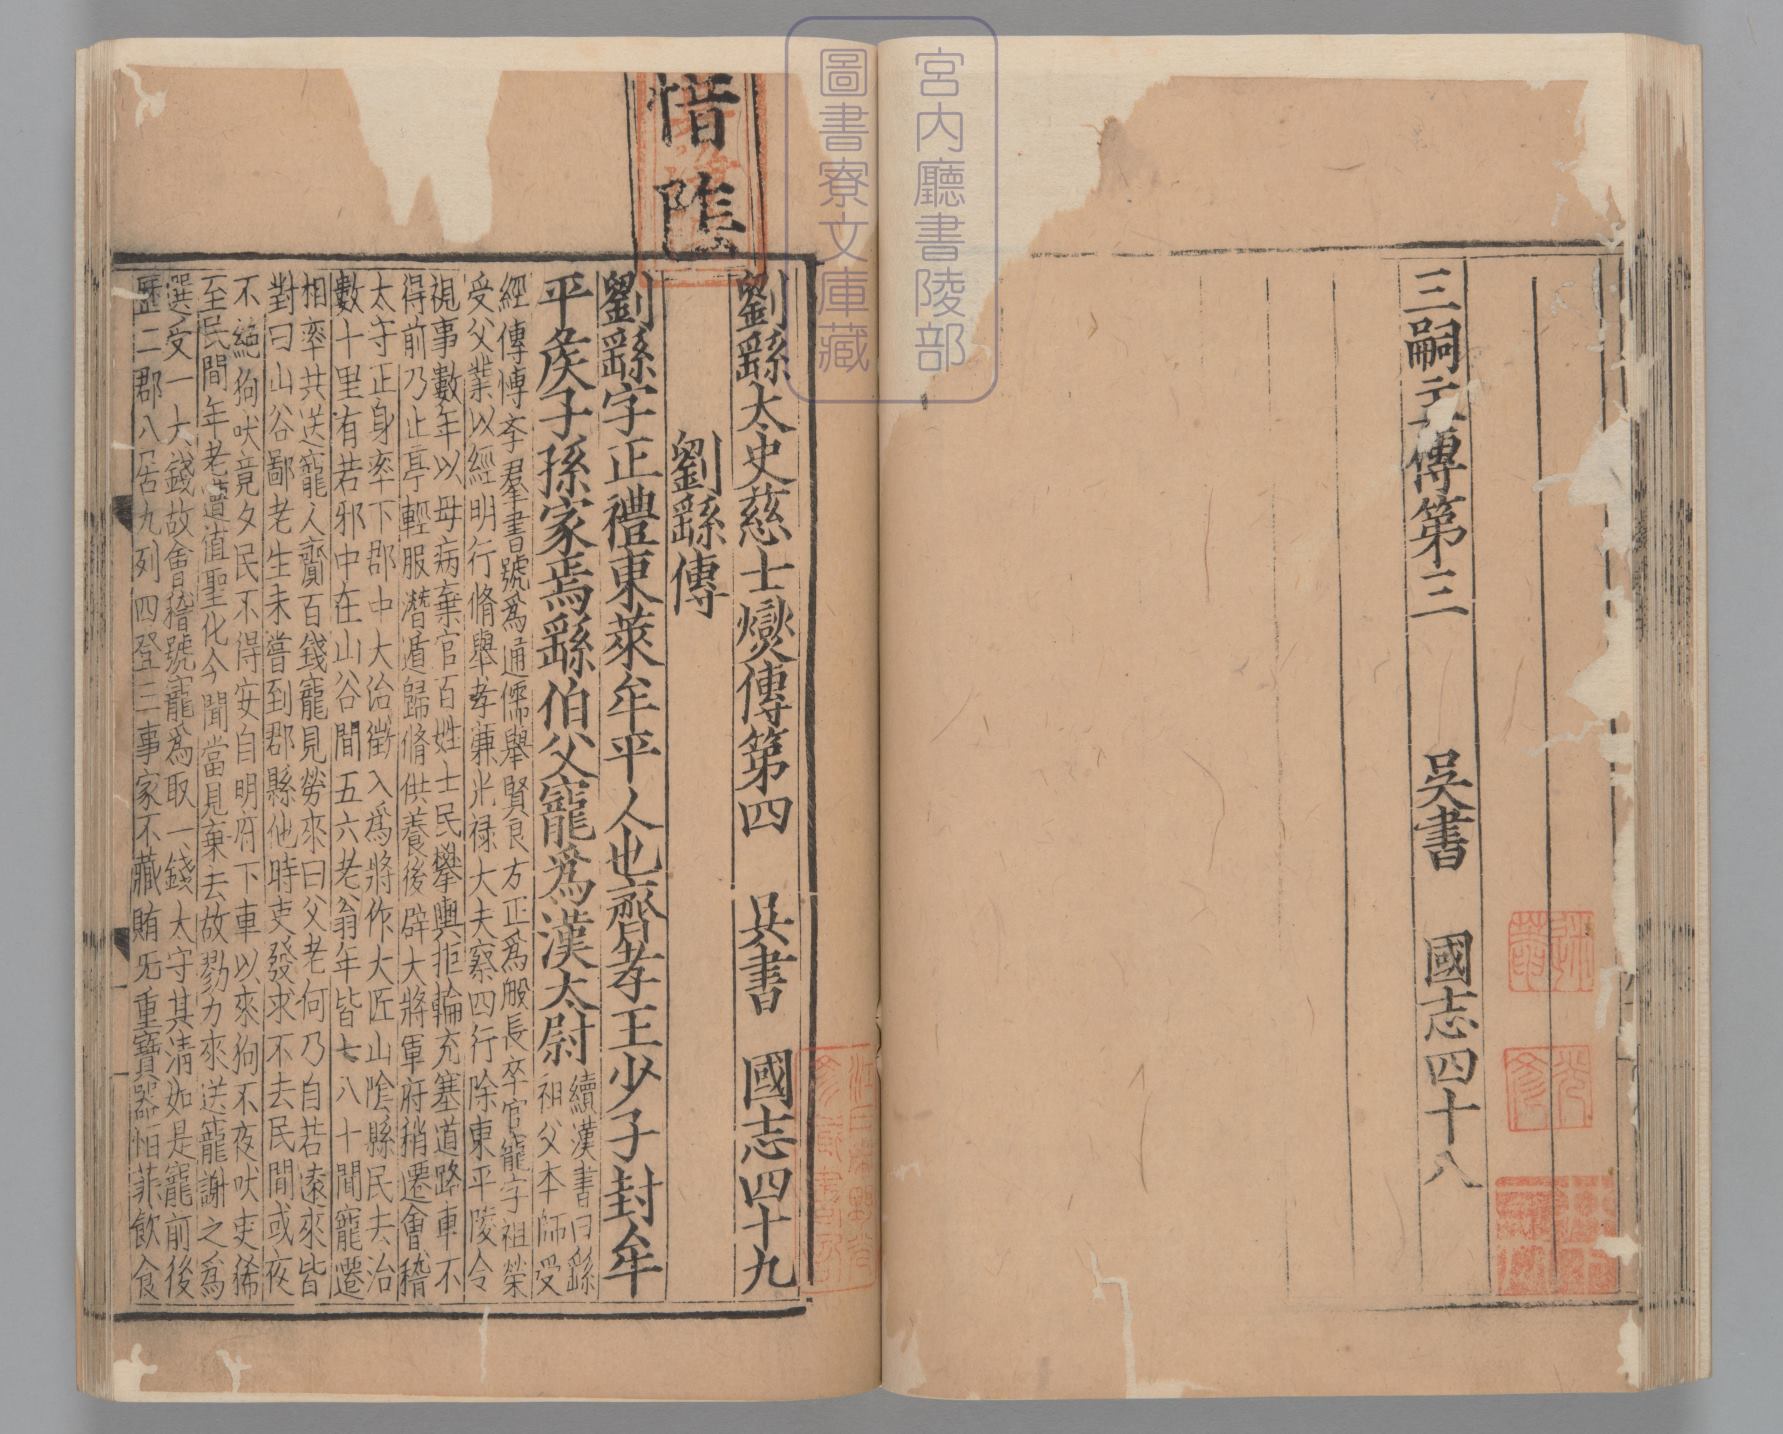 三嗣主傳第三 吳書 國志四十八
宮内廳書陵部
圖書寮文庫藏
惜陰
劉繇太史慈士燮傳第四 吳書 國志四十九
劉繇傳
劉繇字正禮東萊牟平人也齊孝王少子封牟
平侯子孫家焉繇伯父寵爲漢太尉
續漢書曰繇
祖父本師受
經傳博學羣書號爲通儒舉賢良方正爲般長卒官寵字祖榮
受父業以經明行脩舉孝廉光禄大夫察四行除東平陵令
視事數年以母病棄官百姓士民攀輿拒輪充塞道路車不
得前乃止亭輕服潛遁歸脩供養後辟大將軍府稍遷會稽
太守正身率下郡中大治徵入爲將作大匠山陰縣民去治
數十里有若邪中在山谷間五六老翁年皆七八十聞寵遷
相率共送寵人齎百錢寵見勞來曰父老何乃自苦遠來皆
對曰山谷鄙老生未嘗到郡縣他時吏發求不去民間或夜
不絕狗吠竟夕民不得安自明府下車以來狗不夜吠吏稀
至民間年老遭值聖化今聞當見棄去故勠力來送寵謝之爲
選受一大錢故會稽號寵爲取一錢太守其清如是寵前後
歷二郡八居九列四登三事家不藏賄无重寶器怕菲飲食